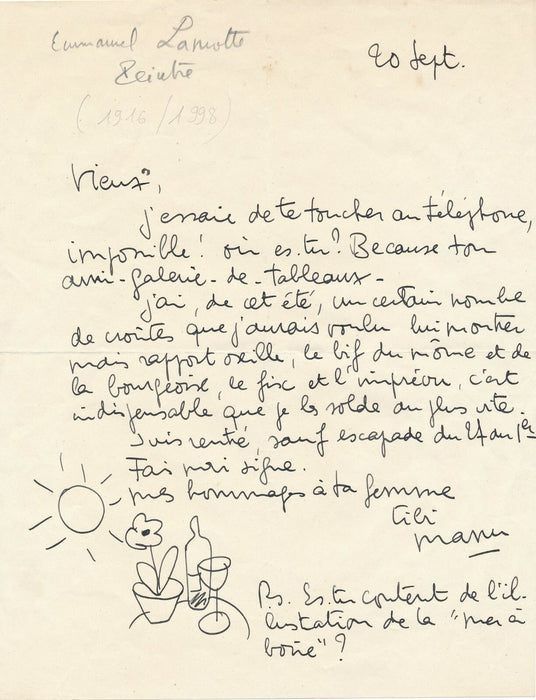 Emmanuel Lamotte
Peintre
(1916/1998)
20 Sept.
Vieux,
j'essaie de te toucher au téléphone,
impossible! où es-tu? Because ton
ami-galerie-de-tableaux-
j'ai, de cet été, un certain nombre
de croûtes que j'aurais voulu lui montrer
mais rapport oseille, le bif du môme et de
la bourgeoise, le fisc et l'imprévu, c'est
indispensable que je les solde au plus vite.
Suis rentré, sauf escapade du 27 au 1er
Fais moi signe.
mes hommages à ta femme
Manu
Ps. Es-tu content de l'il-
lustration de la "mer à
boire"?